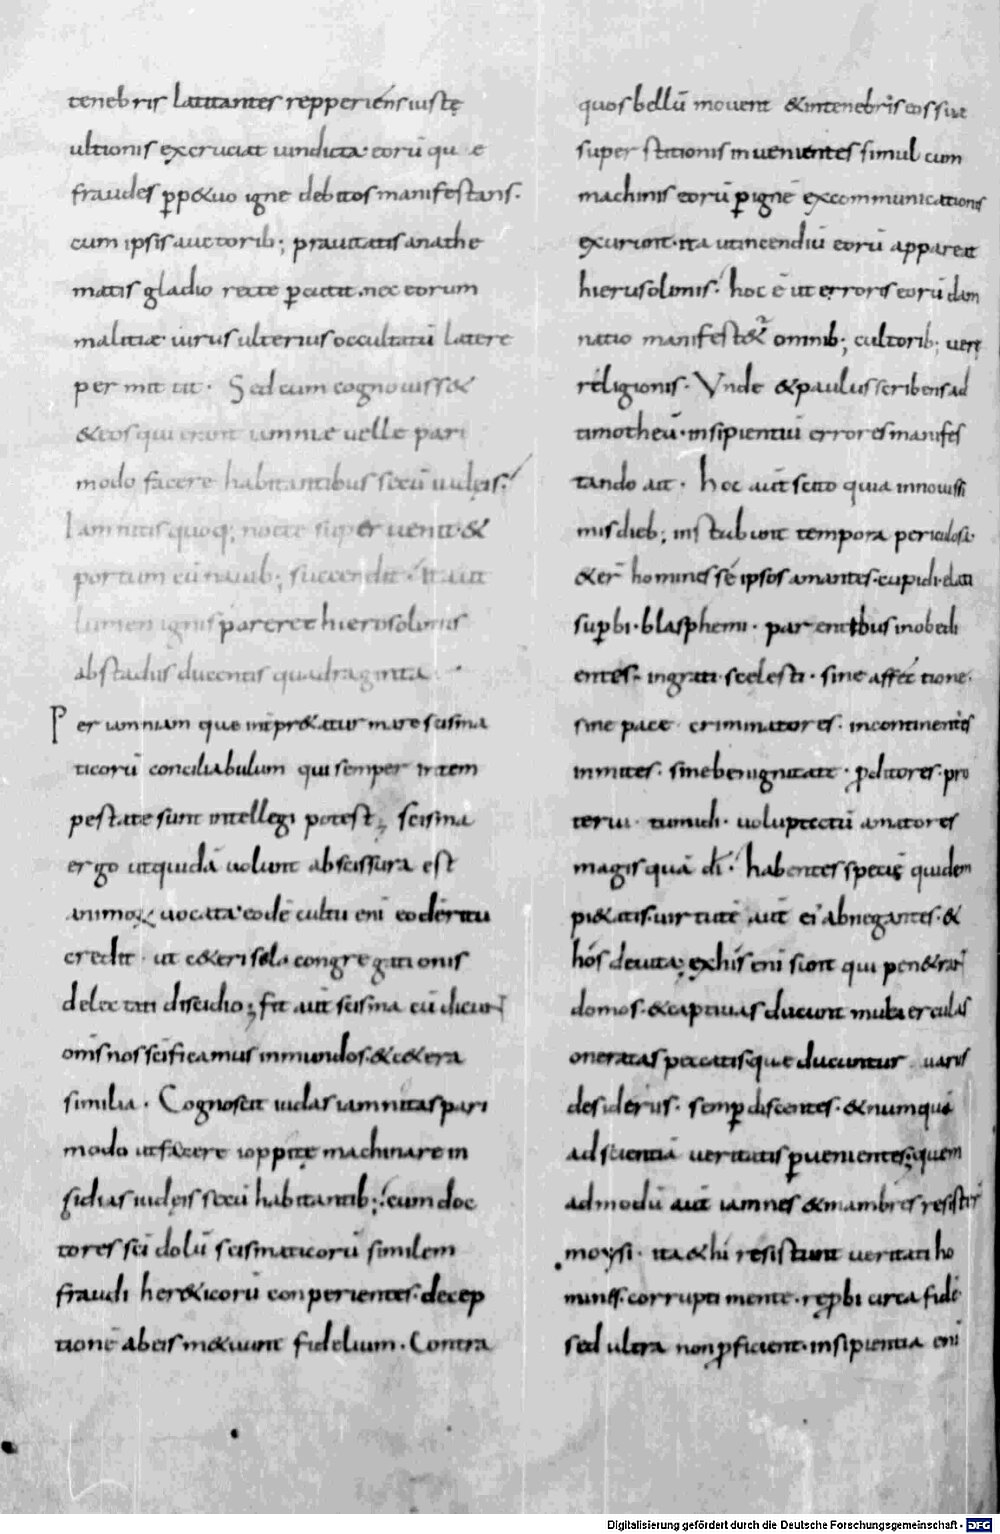 tenebris latitantes repperiens iustę
ultionis excruciat uindicta eorū qu e
fraudes ꝑp&uo igne debitos manifestans.
cum ipsis auctorib; prauitatis anathe
matis gladio recte ꝑcutit. nec eorum
malitiæ uirus ulterius occultatū latere
permittit. Sed cum cognouiss&
& eos qui erant iamniæ uelle pari
modo facere habitantibus secū iudęis.
Iamnitis quoq; nocte superuenit. &
portum cū nauib; succendit. Ita ut
lumen ignis pareret hierosolimis
ab stadiis ducentis quadraginta.
Per iamniam que intpr&atur mare scisma
ticorū conciliabulum qui semper in tem
pestate sunt intellegi potest; scisma
ergo ut quidā uolunt abscissura est
animoꝝ uocata. eodē cultu enī eodē ritu
credit. ut c&eri sola congregationis
delectati discidio; fit aut scisma cū dicunt
omīs nos scificamus inmundos. & c&era
similia. Cognoscit iudas iamnitas pari
modo ut facere ioppitę machinare in
sidias iudęis secū habitantib; cum doc
tores sci dolū scismaticorū similem
fraudi her&icorū conperientes. decep
tionē ab eis m&uunt fidelium. Contra
quos bellū mouent & in tenebris eos suæ
superstitionis inuenientes simul cum
machinis eorū ꝑ ignē excommunicationis
exurunt. ita ut incendiū eorū appareat
hierusolimis. hoc ē ut erroris eorū dam
natio manifest& omnib; cultorib; uerę
religionis. Vnde & paulus scribens ad
timotheū. insipientiū errores manifes
tando ait. hoc aut scito quia in nouissi
mis dieb; instabunt tempora periculosa.
& er homines se ipsos amantes. cupidi. elati
suꝑbi. blasphemi. parentibus inobedi
entes. ingrati. scelesti. sine affectione.
sine pace criminatores. incontinentes
inmites. sine benignitate. ꝓditores. pro
terui. tumidi. uoluptatū amatores
magis quā dī. habentes speciē quidem
pi&atis. uirtutē aut ei abnegantes. &
hos deuita; ex his enī sunt qui pen&rant
domos. & captiuas ducunt mulierculas
oneratas peccatis. quæ ducuntur uariis
desideriis. semꝑ discentes. & numquā
ad scientiā ueritatis ꝑuenientes; quem
admodū aut iamnes & mambres resistir
moysi. ita & hi resistunt ueritati ho
mines. corrupti mente. reꝓbi circa fidē
sed ultra non ꝓficient. insipientia enī
Digitalisierung gefördert durch die Deutsche Forschungsgemeinschaft - DFG